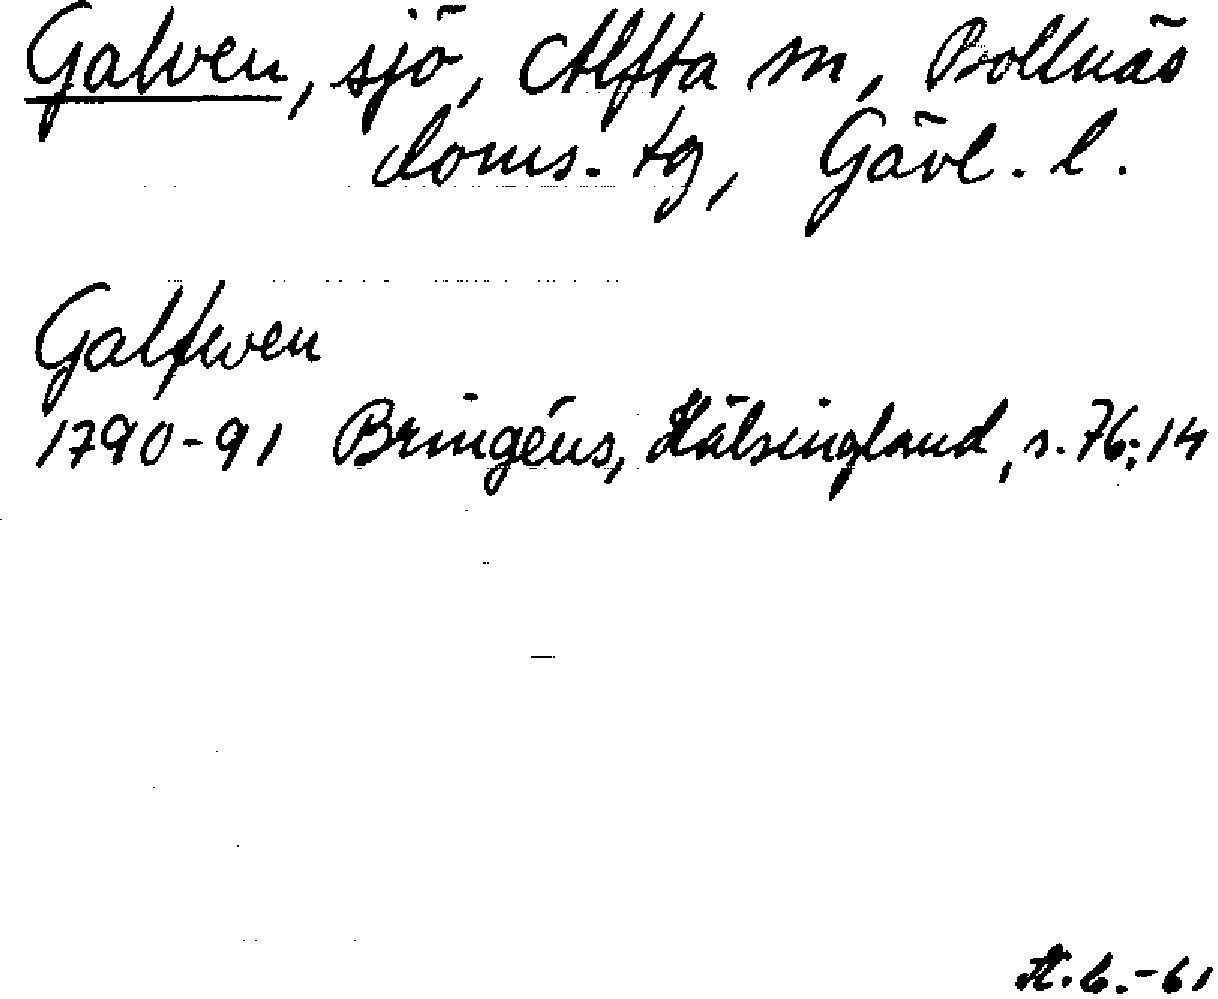 Galven, sjö, Alfta sn, Bollnäs
doms. tg, Gävl. l.
Galfwen
1790-91 Bringéus, Hälsingland, s. 76:14